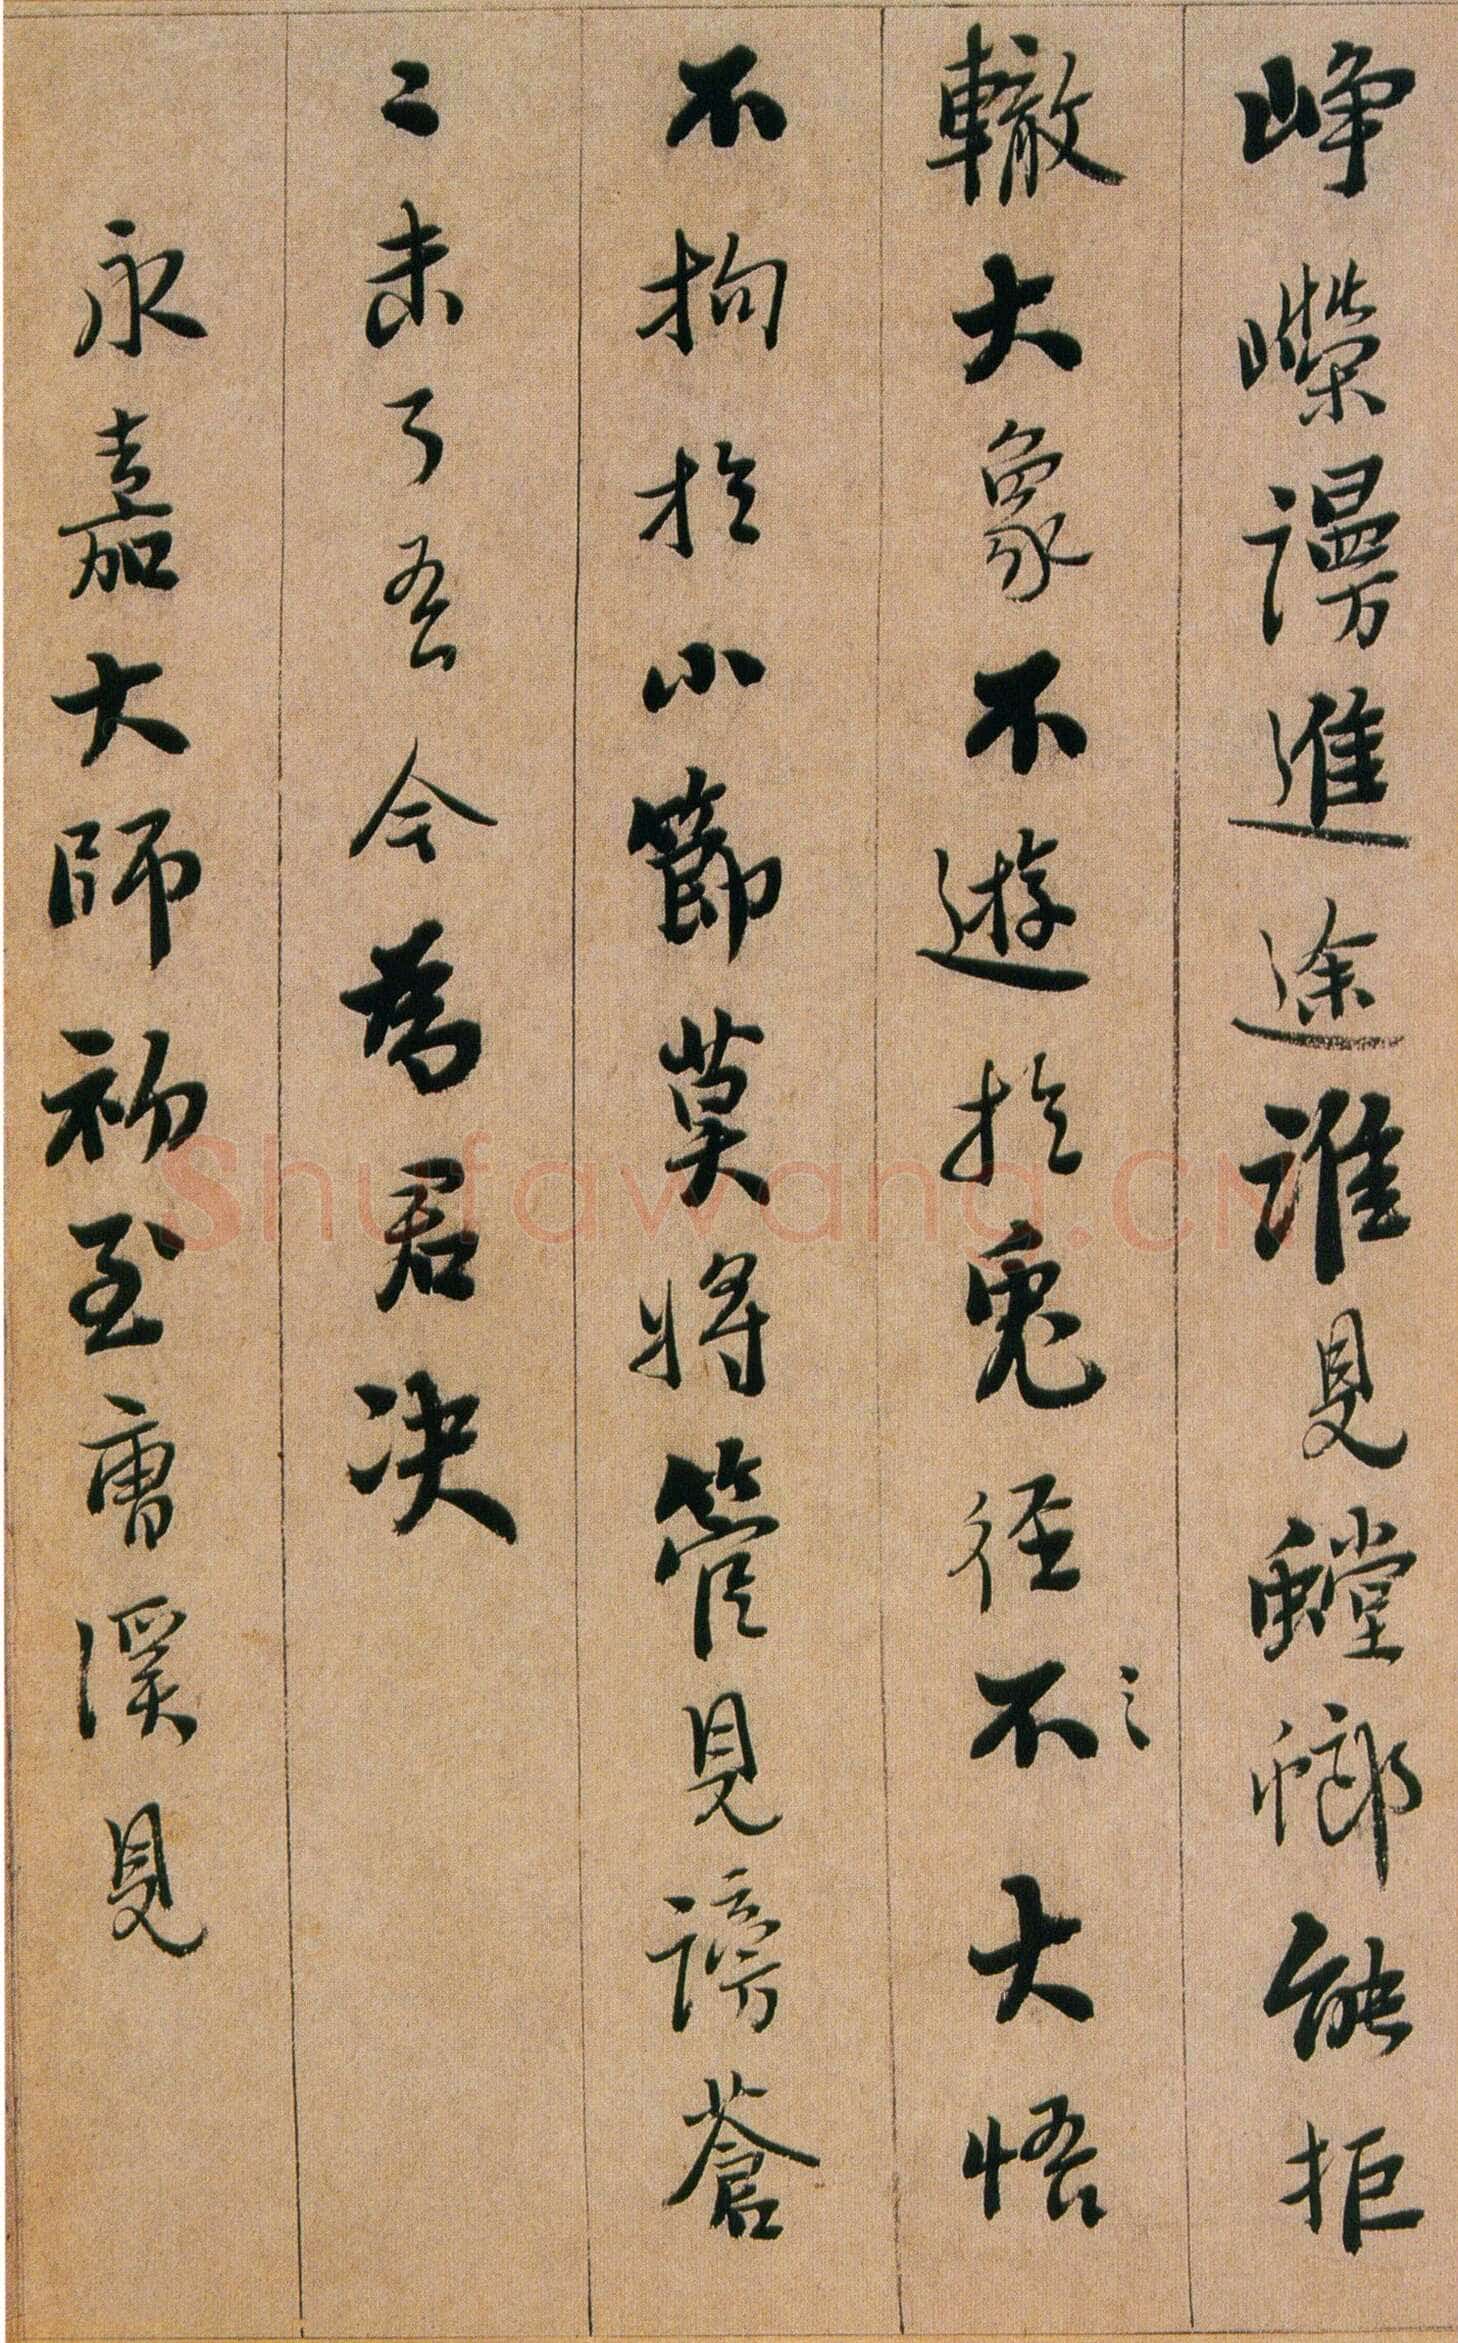 崢嶸謾進途誰見螳螂能拒
轍大象不遊於兔徑不大悟
不拘於小節莫將管見謗蒼
〻未了吾今為君决
永嘉大師初至曹溪見
Shufawang.CN